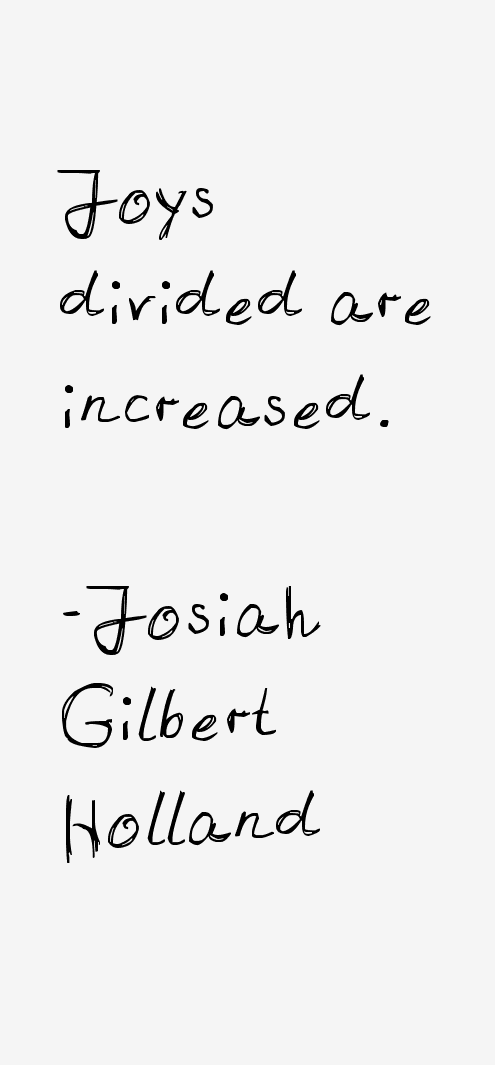 Joys
divided are
increased.
-Josiah
Gilbert
Holland